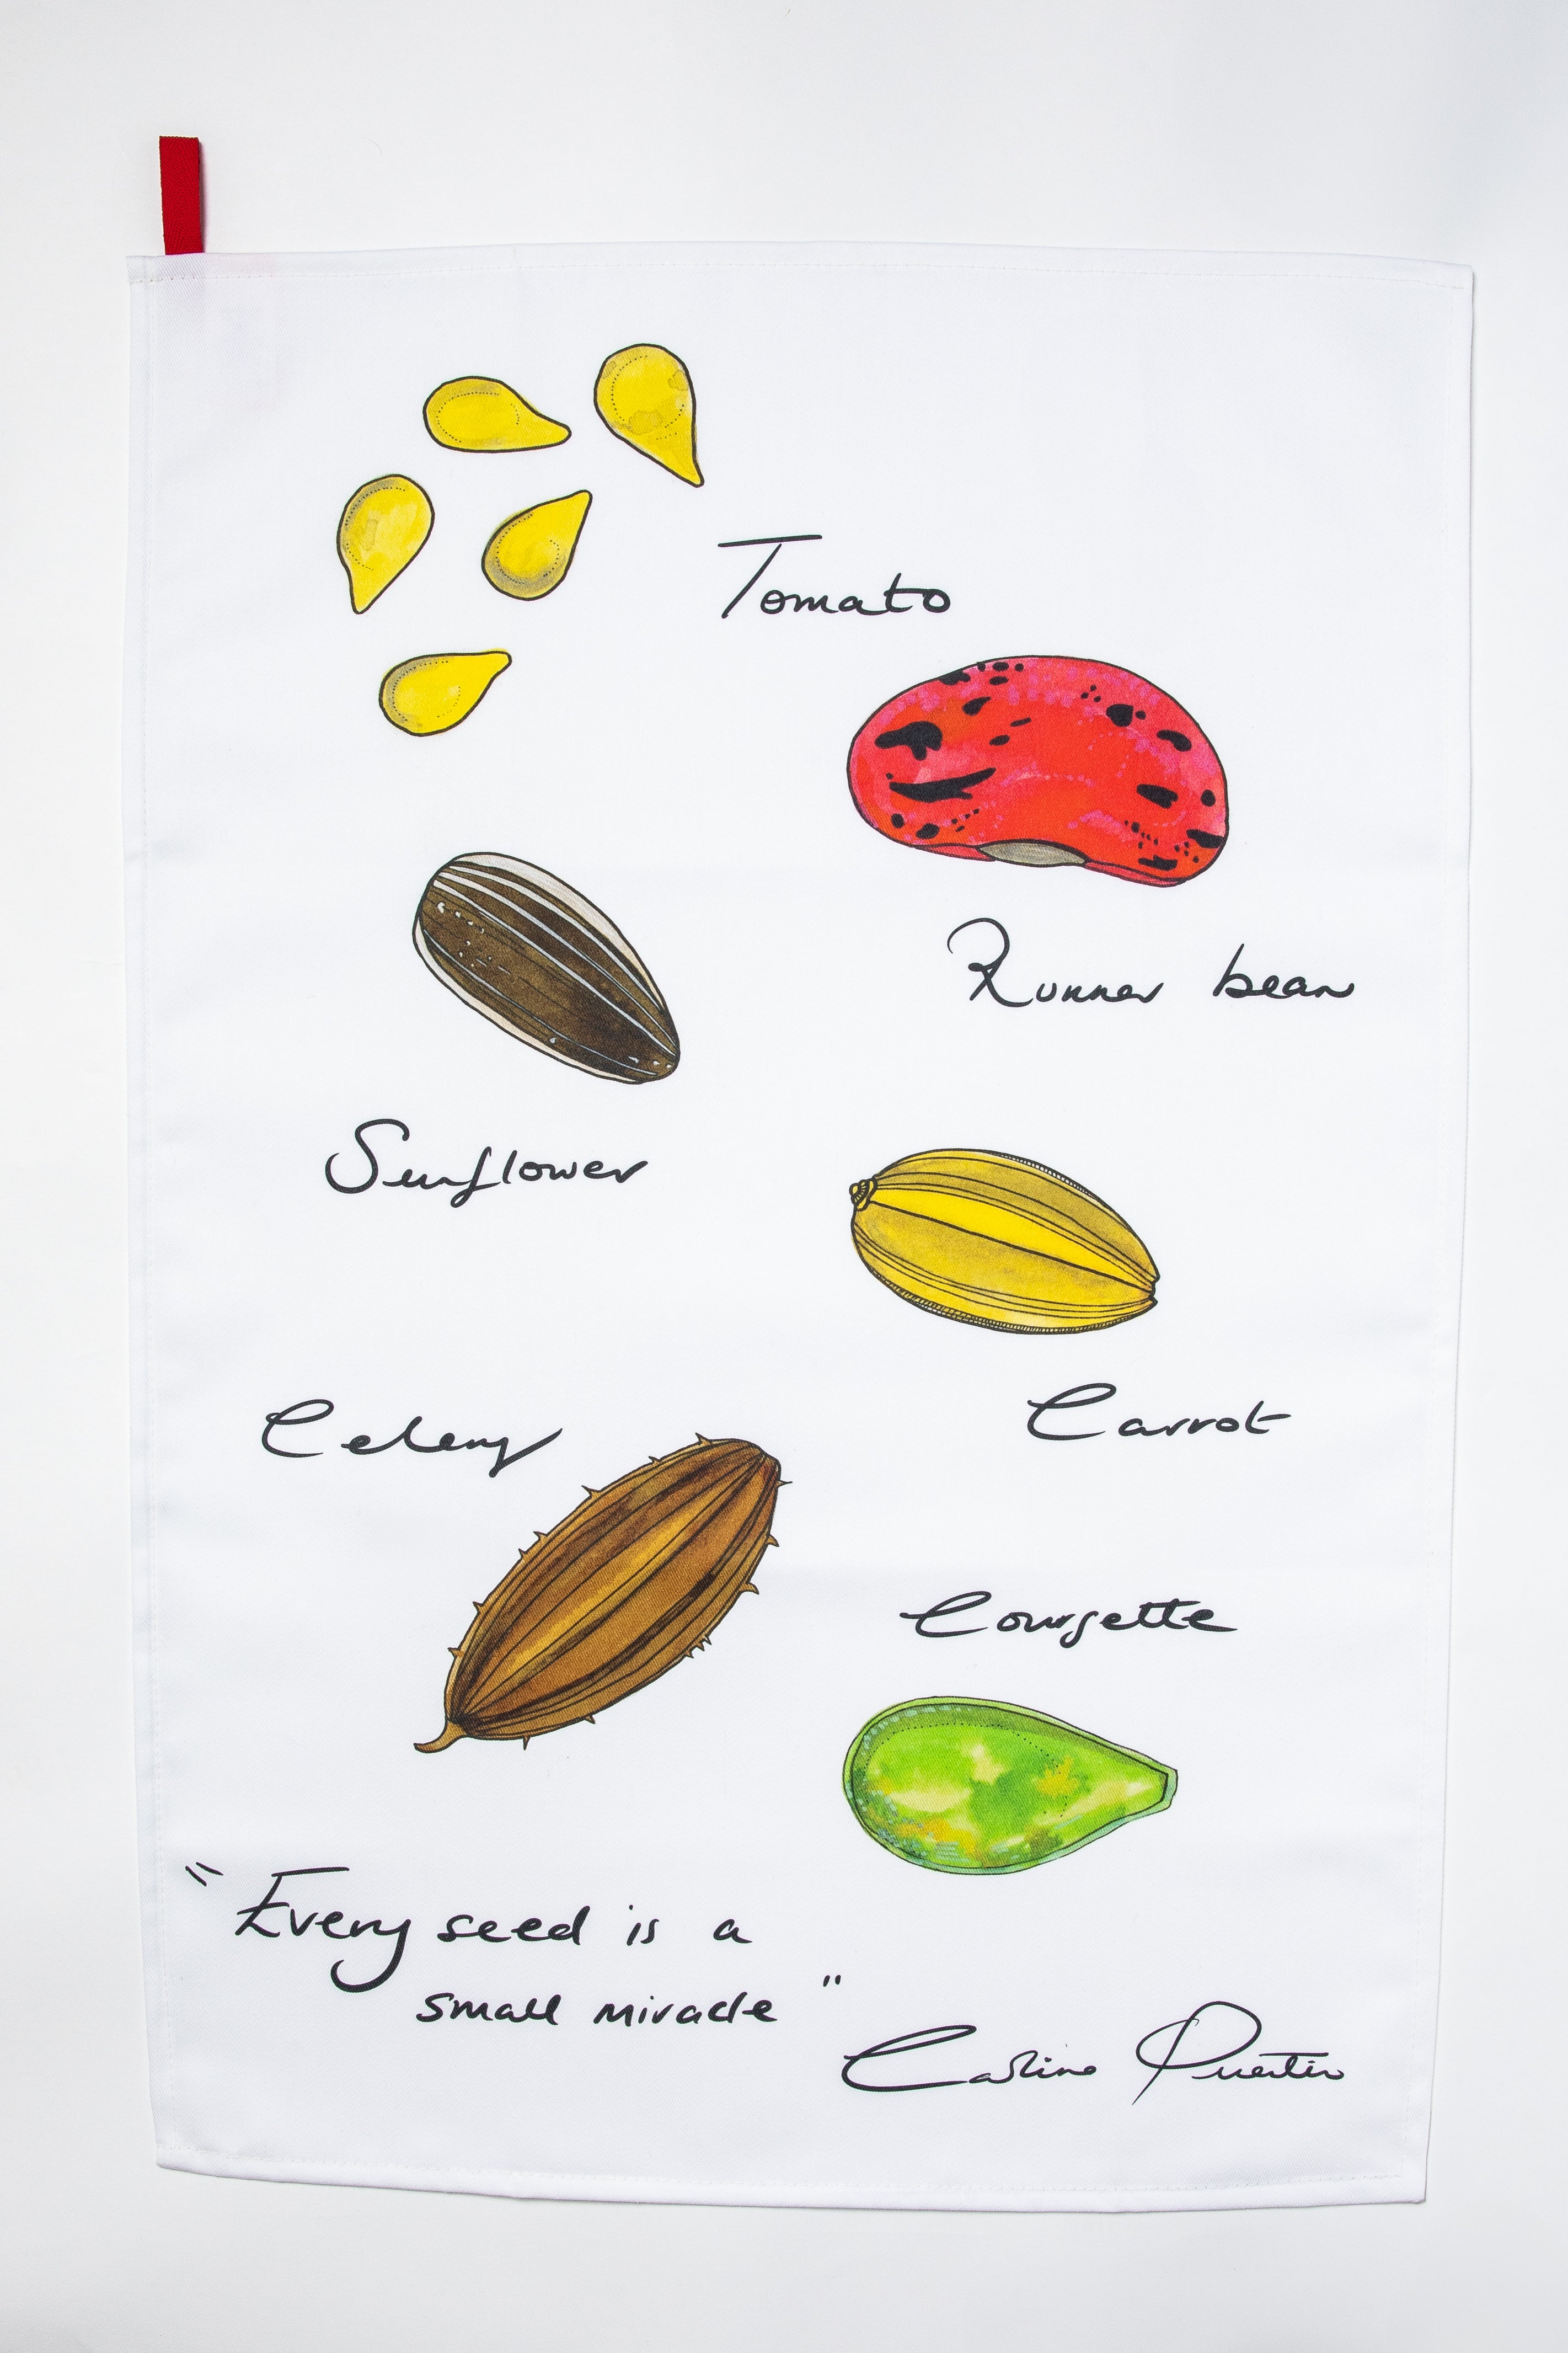 Tomato
Runner bean
Sunflower
Carrot
Celery
Courgette
"Every seed is a
small miracle"
Caroline Quentin